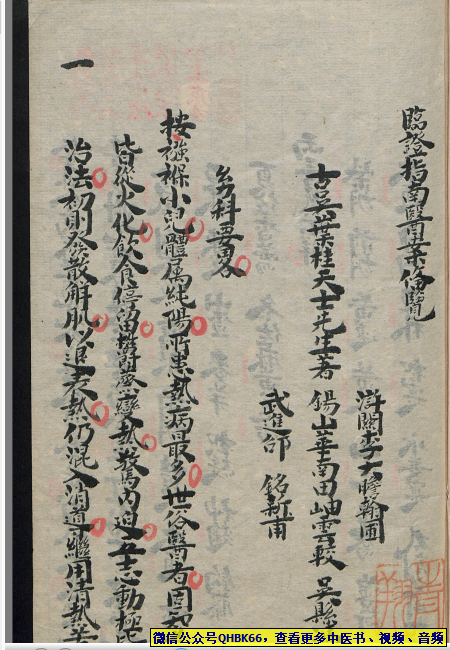 臨證指南醫案偹覽
滸関李大瞻翰圃
古吳葉桂天士先生著 錫山華南田岫雲較 吳縣
武進邵 銘新甫
幼科要畧
按襁褓小兒體屬純陽所患熱病最多世俗醫者固知
皆從火化飲食停留欝蒸變熱驚内迫五志動極皆
一
治法初則發散解肌以退表熱仍混入消導繼用清熱苦
微信公众号QHBK66，查看更多中医书、视频、音频